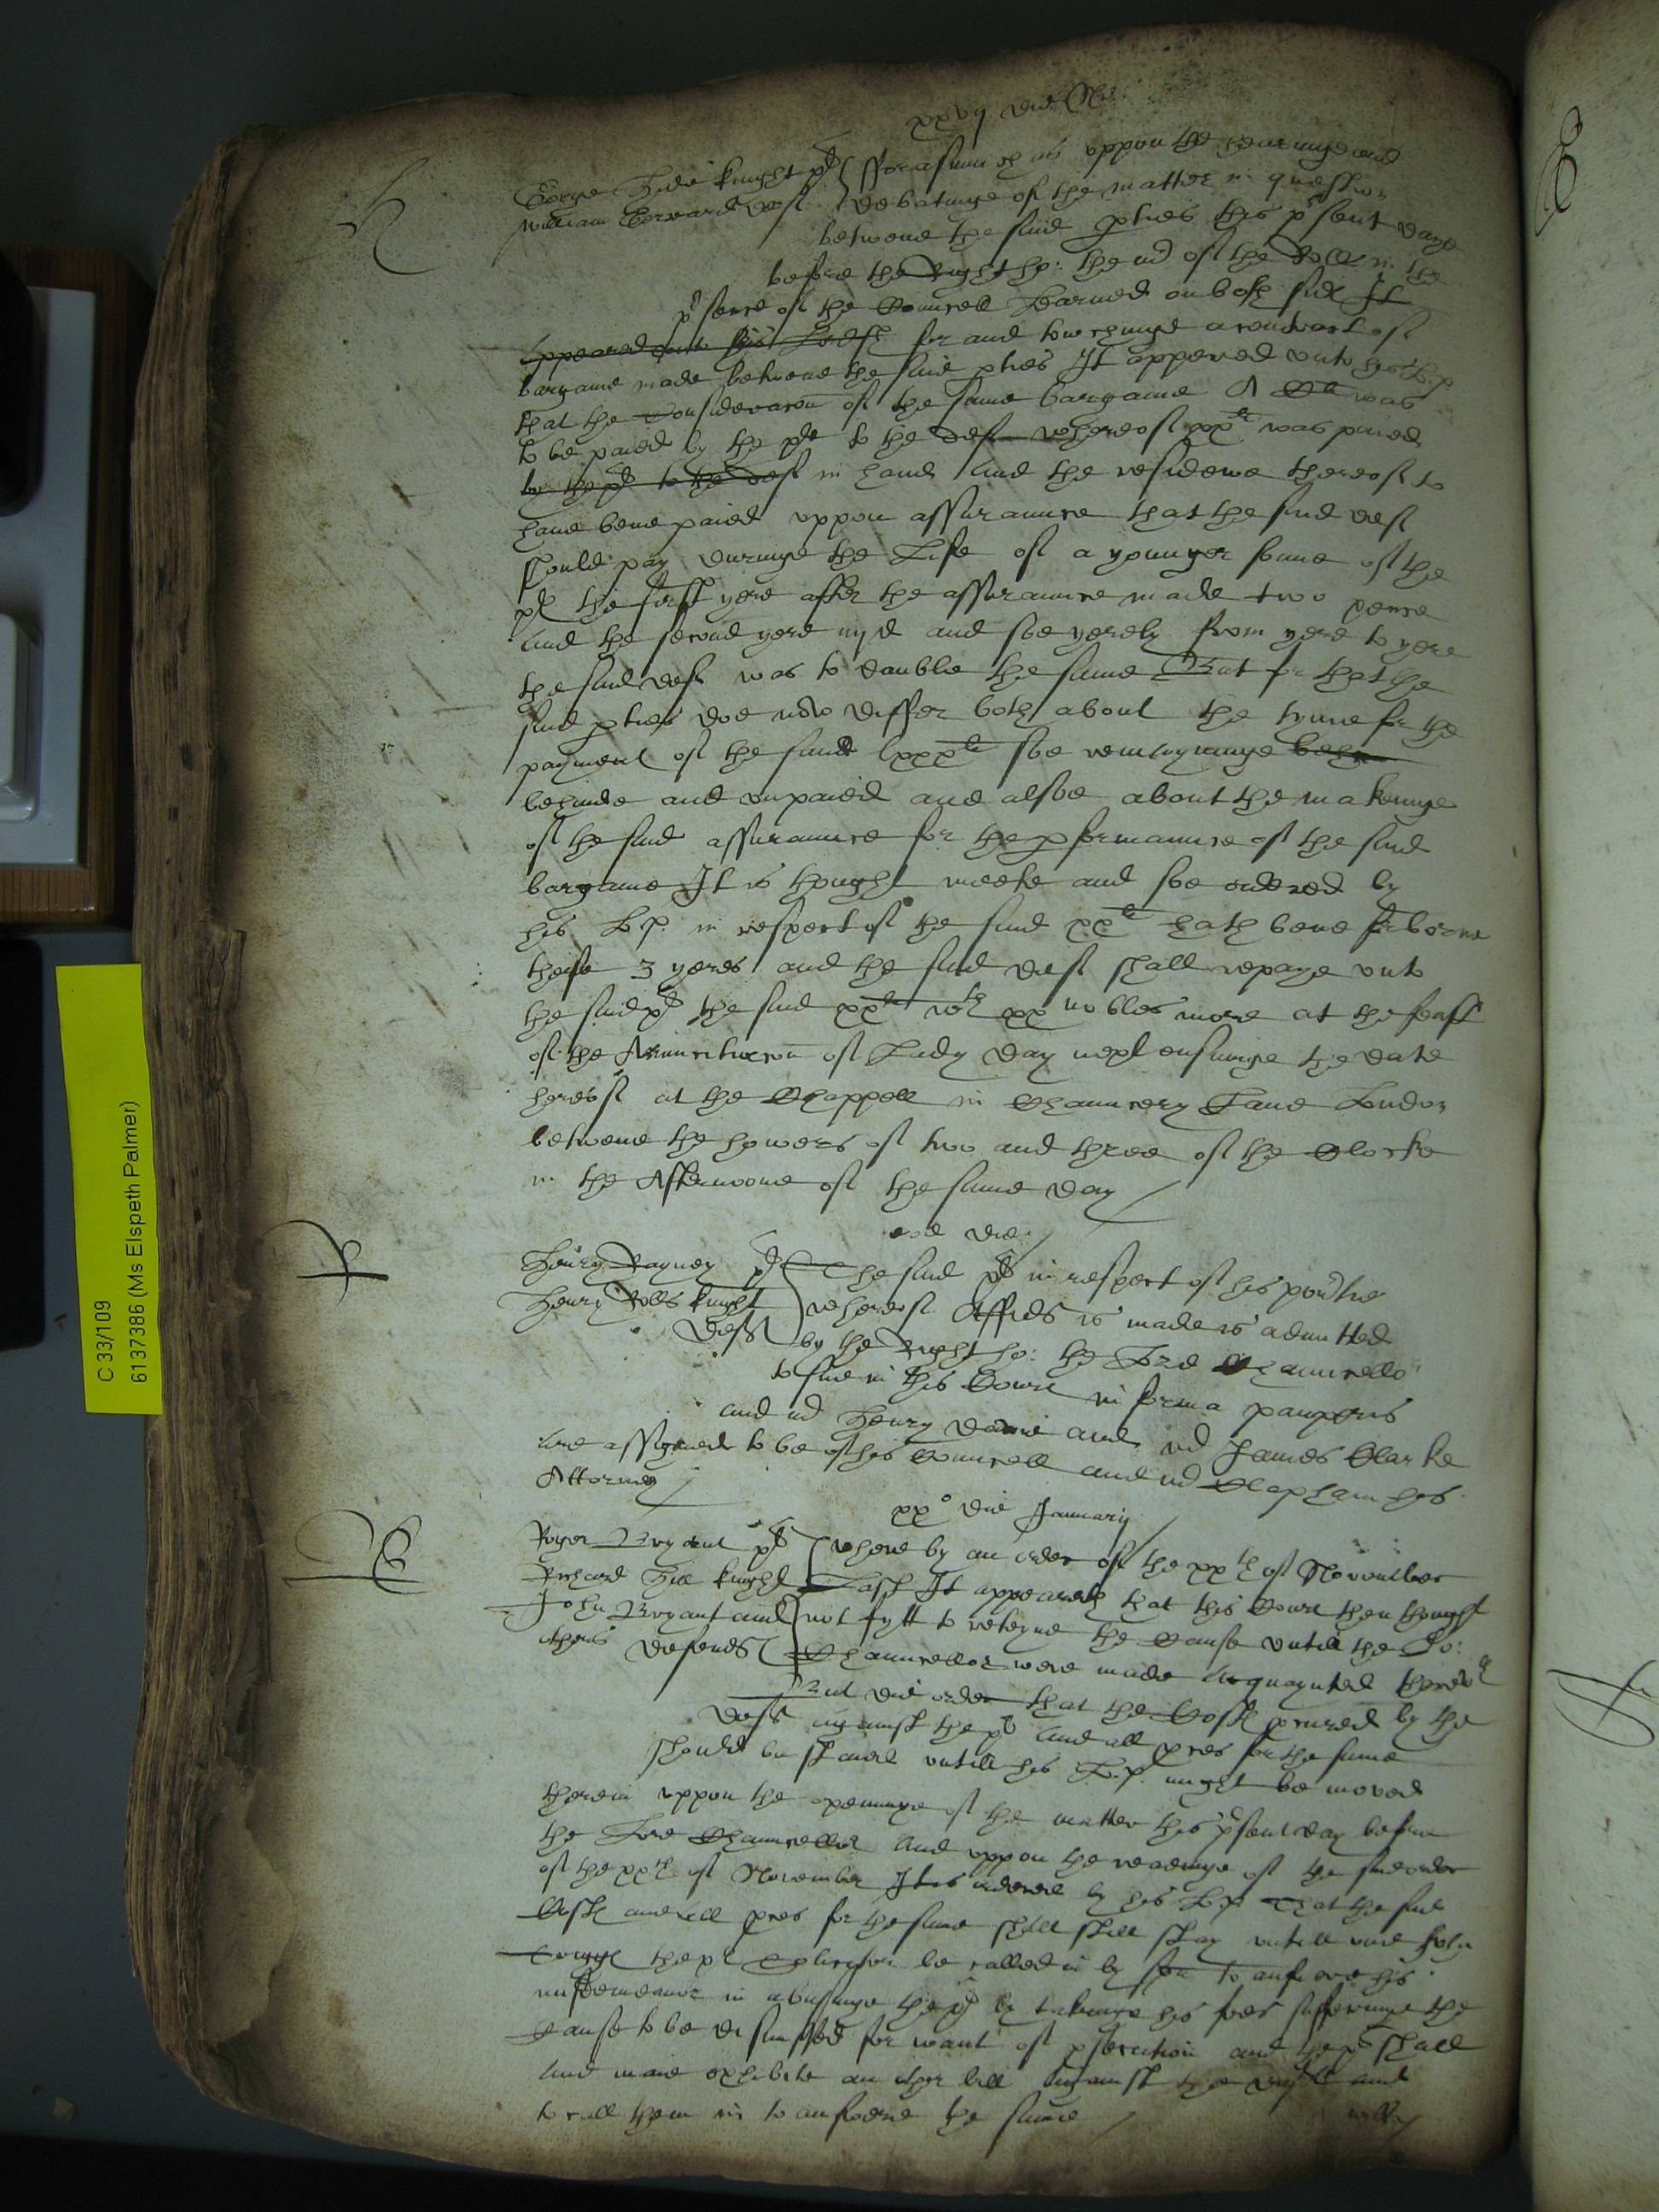 H
xxvij die
George Hide knight pl Forasmuch as uppon the hearinge and
William Gerrard def debatinge of the matter in question
betwene the said pties this psent daye
before the Right ho: the mr of the Rolles in the
psence of the Councell Learned on both sides It
appeared unto his Lordsh for and towchinge a contract of
bargaine made betwene the said pties It appered unto his Lp.
that the Consideracon of the same bargaine was
to be paied by the plt to the def whereof xxli was paied
by the pl to the def in hand And the residewe thereof to
have bene paied uppon assuraunce that the said def
should pay duringe the Life of a younger sonne of the
pl the first yere after the assuraunce made two pence
And the second yere iiijd and soe yerely from yere to yere
the said def was to dauble the same But for that the
said pties doe now differ both about the tyme for the
payment of the said lxxxli soe remayninge behin
behinde and unpaied and alsoe about the makinge
of the said assuraunce for the pformaunce of the said
bargaine It is thought meete and soe ordered by
his Lp. in respect of the said xxli hath bene forborne
these 3 yeres and the said def shall repaye unto
the said pl the said xxli wth xx nobles more at the feast
of the Annunciacon of Lady day next ensuinge the date
hereof at the Chappell in Chauncery Lane London
betwene the howers of two and three of the Clocke
in the Afternoone of the same day
eod die
Henry Rayney pl The said pl in respect of his povtie
Henry knight whereof Affid is made is admitted
def by the Right ho: the Lord Chauncello
to sue in this Court in forma pauperis
and mr Henry and mr James Clarke
are assigned to be of his Councell and mr Clapham his
Attorney
xxo die January
Roger Bryant pl where by an order of the xxth of November
Richard knight Last It appeareth that this Court then thought
John Bryant and not fytt to reteyne the Cause untill the Lo:
others defends Chauncellor were made Acquaynted therewth
But did order that the Costs pcured by the
defs against the pl and all pces for the same
should be staied untill his Lp. might be moved
therein uppon the openinge of the matter this psent day before
the Lord Chauncellor And uppon the readinge of the said order
of the xxth of November It is ordered by his Lp. That the said
Costs and all pces for the same shall still stay untill one John
the pl Solicitor be called in by to answere his
misdemeanor in abusinge the pl by takinge his fees sufferinge the
Cause to be dismissed for want of psecution and the pl shall
and maie exhibite an other bill against the defts and
to call them in to answere the same
will
C 33/109
6137386 (Ms Elspeth Palmer)